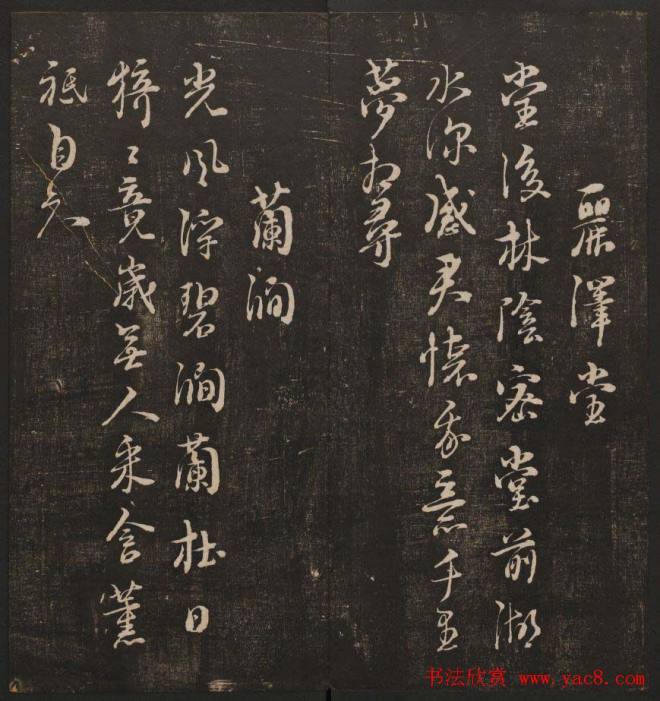 麗澤堂
堂後林陰密堂前湖
水深感君懷我意千里
夢相尋
蘭澗
光風浮碧澗蘭杜日
猗〻竟歲無人采含薰
祗自知
书法欣赏 www.yac8.com